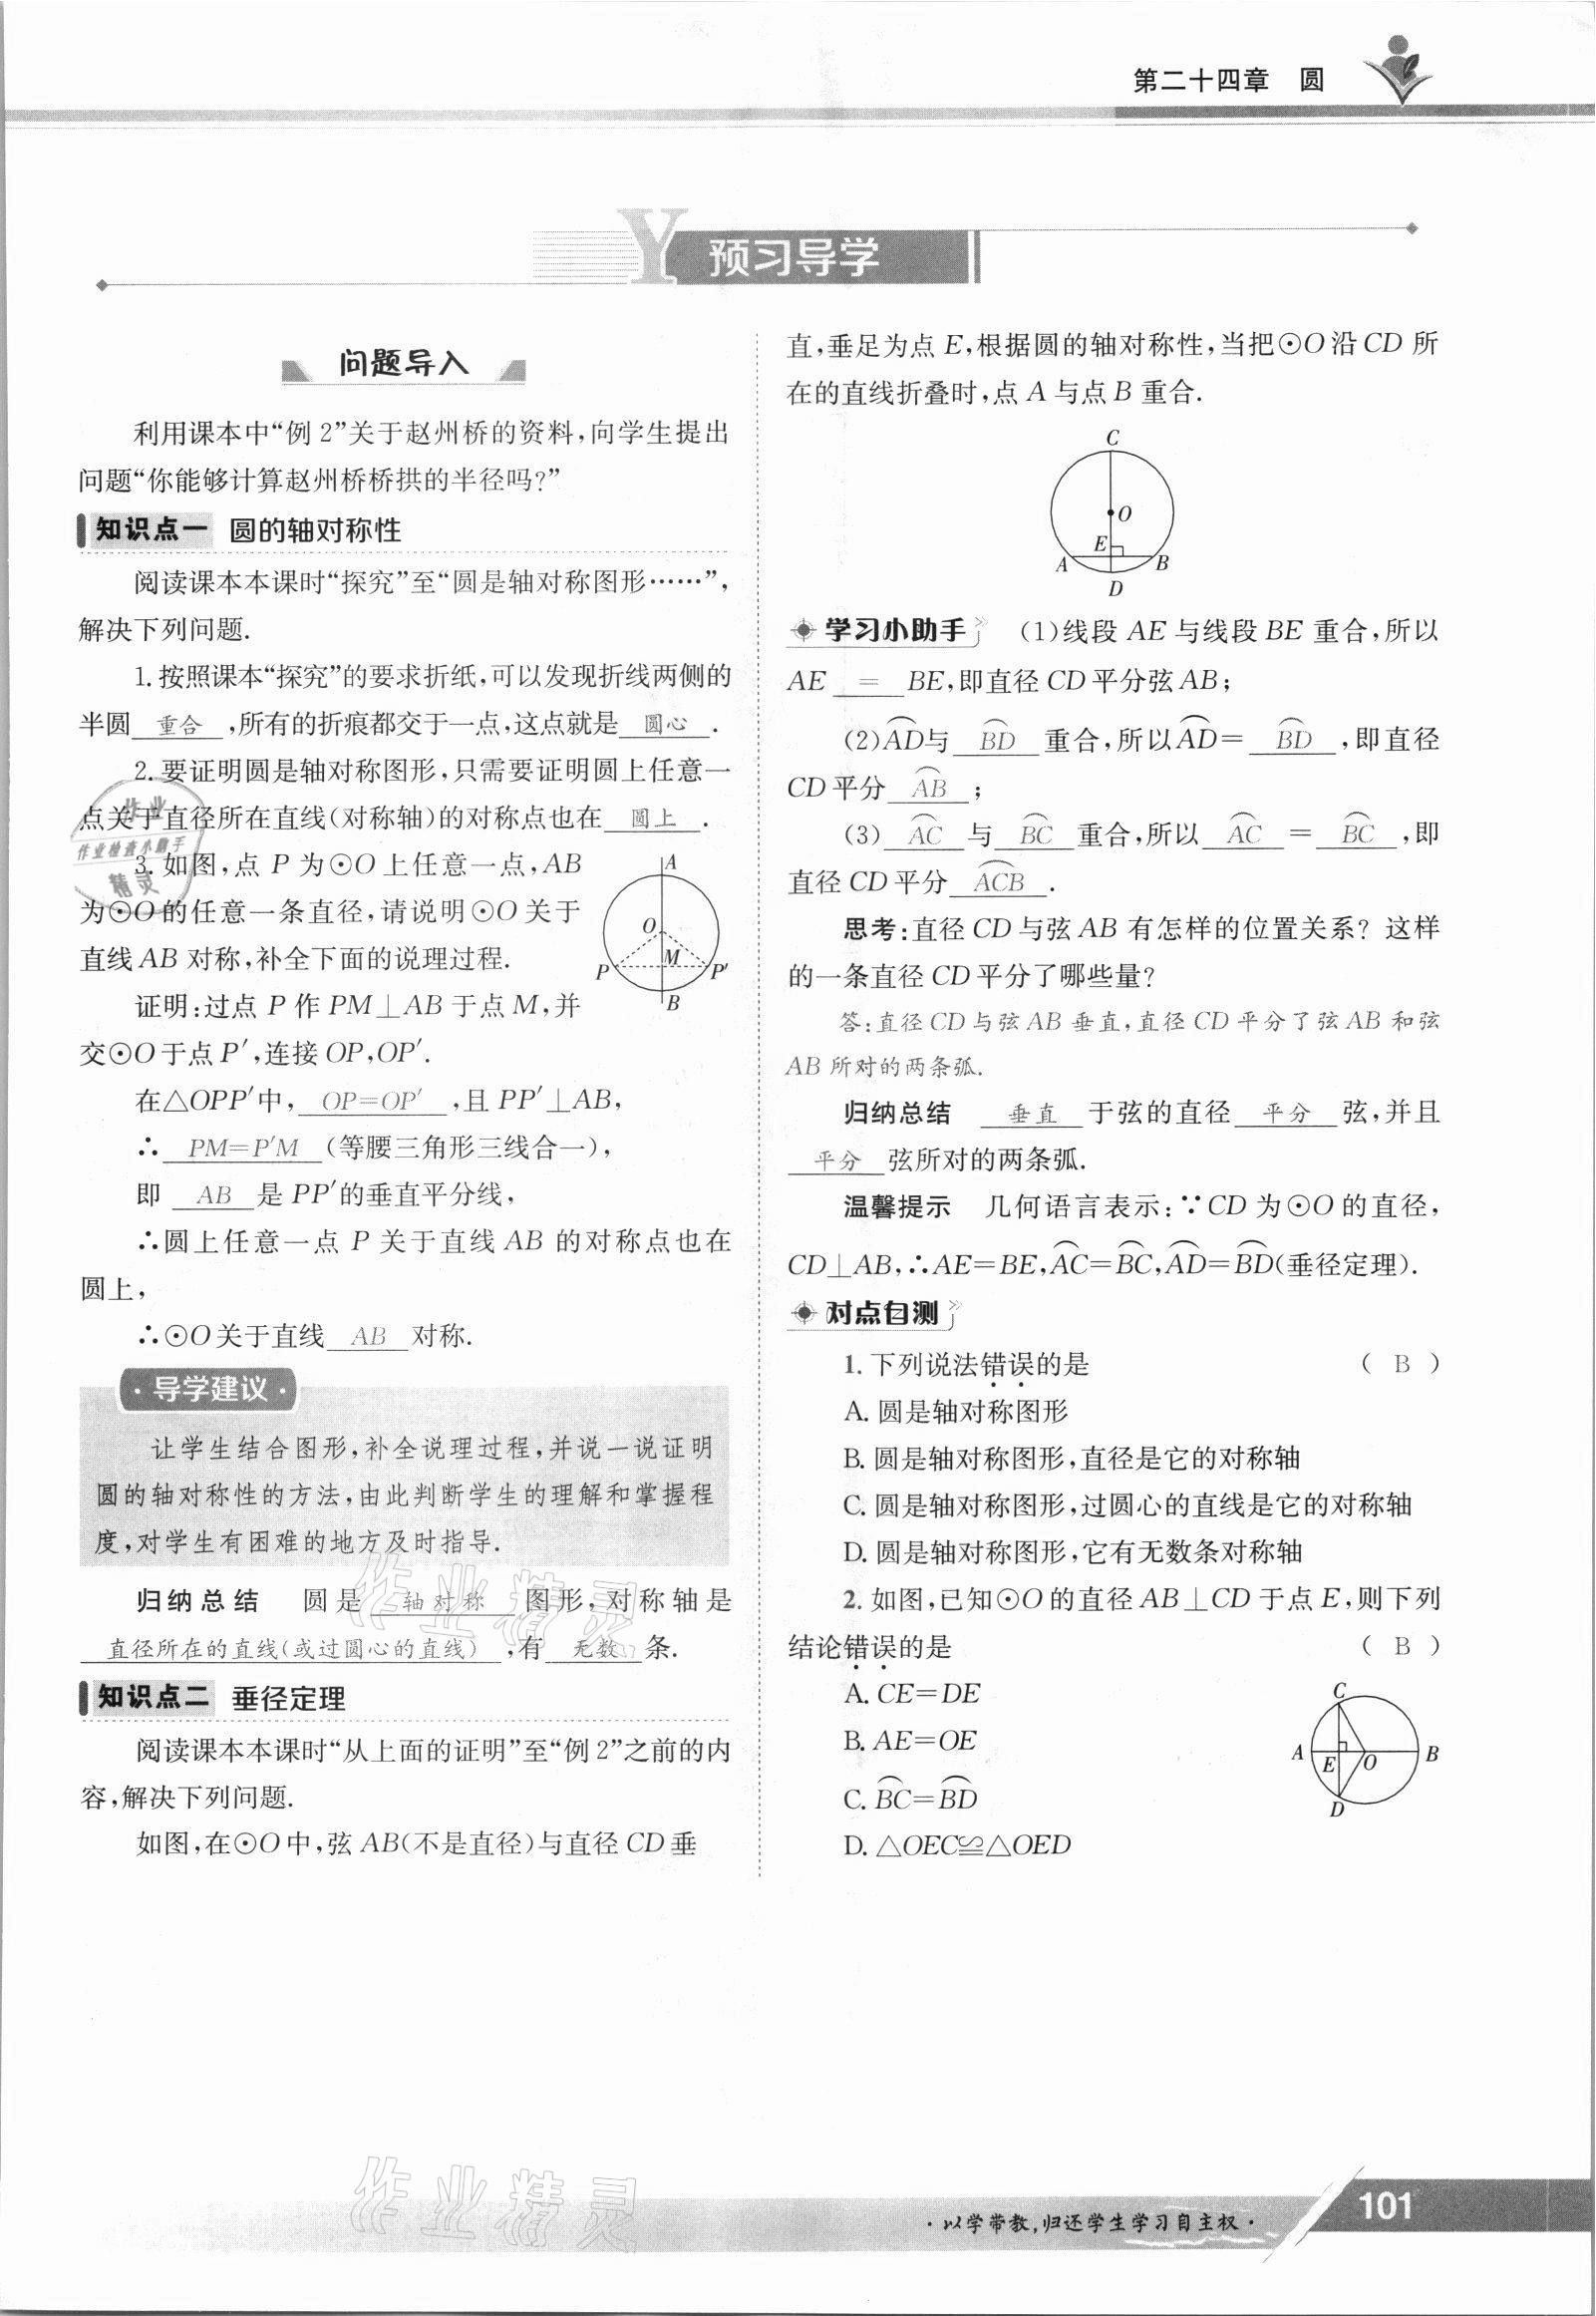 第二十四章 圆
Y 预习导学
问题导入
利用课本中“例2”关于赵州桥的资料,向学生提出
问题“你能够计算赵州桥桥拱的半径吗?”
知识点一 圆的轴对称性
阅读课本本课时“探究”至“圆是轴对称图形……”,
解决下列问题.
1.按照课本“探究”的要求折纸,可以发现折线两侧的
半圆 重合 ,所有的折痕都交于一点,这点就是 圆心 .
2.要证明圆是轴对称图形,只需要证明圆上任意一
点关于直径所在直线(对称轴)的对称点也在 圆上 .
3.如图,点 P 为⊙O 上任意一点,AB
为⊙O的任意一条直径,请说明⊙O关于
直线AB对称,补全下面的说理过程.
A
O
M
P
P′
B
证明:过点 P 作 PM⊥AB 于点 M,并
交⊙O于点 P′,连接 OP,OP′.
在△OPP′中, OP=OP′ ,且 PP′⊥AB,
∴ PM=P′M (等腰三角形三线合一),
即 AB 是 PP′的垂直平分线,
∴圆上任意一点 P 关于直线 AB 的对称点也在
圆上,
∴⊙O关于直线 AB 对称.
·导学建议·
让学生结合图形,补全说理过程,并说一说证明
圆的轴对称性的方法,由此判断学生的理解和掌握程
度,对学生有困难的地方及时指导.
归纳总结 圆是 轴对称 图形,对称轴是
直径所在的直线(或过圆心的直线) ,有 无数 条.
知识点二 垂径定理
阅读课本本课时“从上面的证明”至“例2”之前的内
容,解决下列问题.
如图,在⊙O中,弦AB(不是直径)与直径CD垂
直,垂足为点 E,根据圆的轴对称性,当把⊙O沿 CD 所
在的直线折叠时,点 A 与点 B 重合.
C
O
E
A
B
D
学习小助手 (1)线段 AE 与线段 BE 重合,所以
AE = BE,即直径 CD平分弦AB;
(2)A͡D与 B͡D 重合,所以A͡D= B͡D ,即直径
CD平分 A͡B ;
(3) A͡C 与 B͡C 重合,所以 A͡C = B͡C ,即
直径CD平分 A͡CB .
思考:直径CD与弦AB有怎样的位置关系? 这样
的一条直径CD平分了哪些量?
答:直径CD与弦AB垂直,直径CD平分了弦AB和弦
AB所对的两条弧.
归纳总结 垂直 于弦的直径 平分 弦,并且
平分 弦所对的两条弧.
温馨提示 几何语言表示:∵CD为⊙O的直径,
CD⊥AB,∴AE=BE,A͡C=B͡C,A͡D=B͡D(垂径定理).
对点自测
1.下列说法错误的是 ( B )
A.圆是轴对称图形
B.圆是轴对称图形,直径是它的对称轴
C.圆是轴对称图形,过圆心的直线是它的对称轴
D.圆是轴对称图形,它有无数条对称轴
2.如图,已知⊙O的直径AB⊥CD于点E,则下列
结论错误的是 ( B )
A.CE=DE
B.AE=OE
C.B͡C=B͡D
D.△OEC≌△OED
C
A
E
O
B
D
作业
作业检查小助手
精灵
作业精灵
作业精灵
·以学带教,归还学生学习自主权·
101